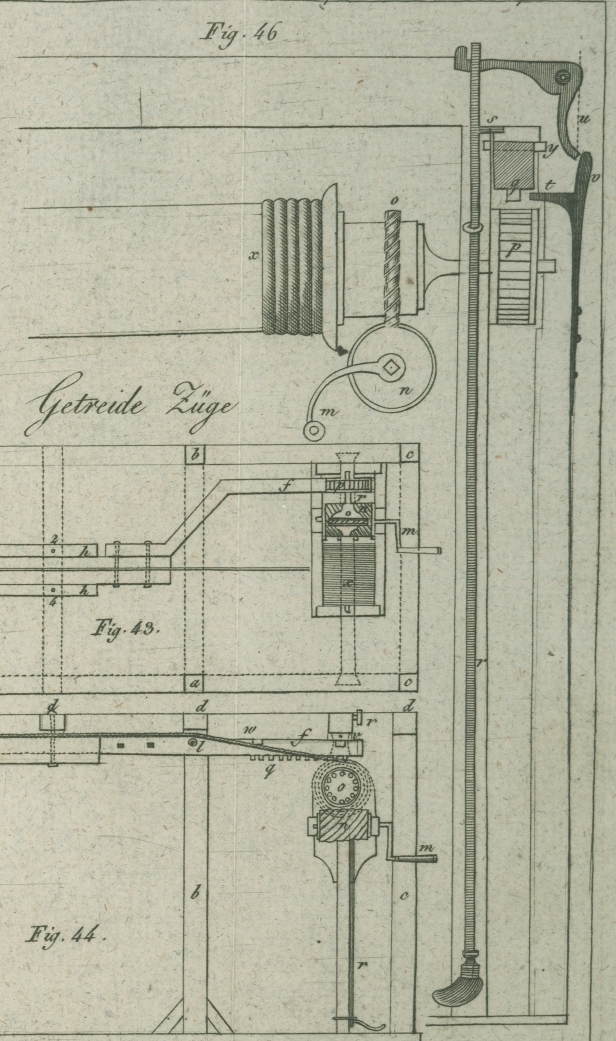 Fig. 46
s
u
y
o
v
q
t
p
x
n
m
Getreide Züge
b
c
f
p
r
n
2
h
m
x
h
4
Fig. 43.
r
a
c
d
d
d
r
w
f
v
l
q
o
n
m
b
c
Fig. 44.
r